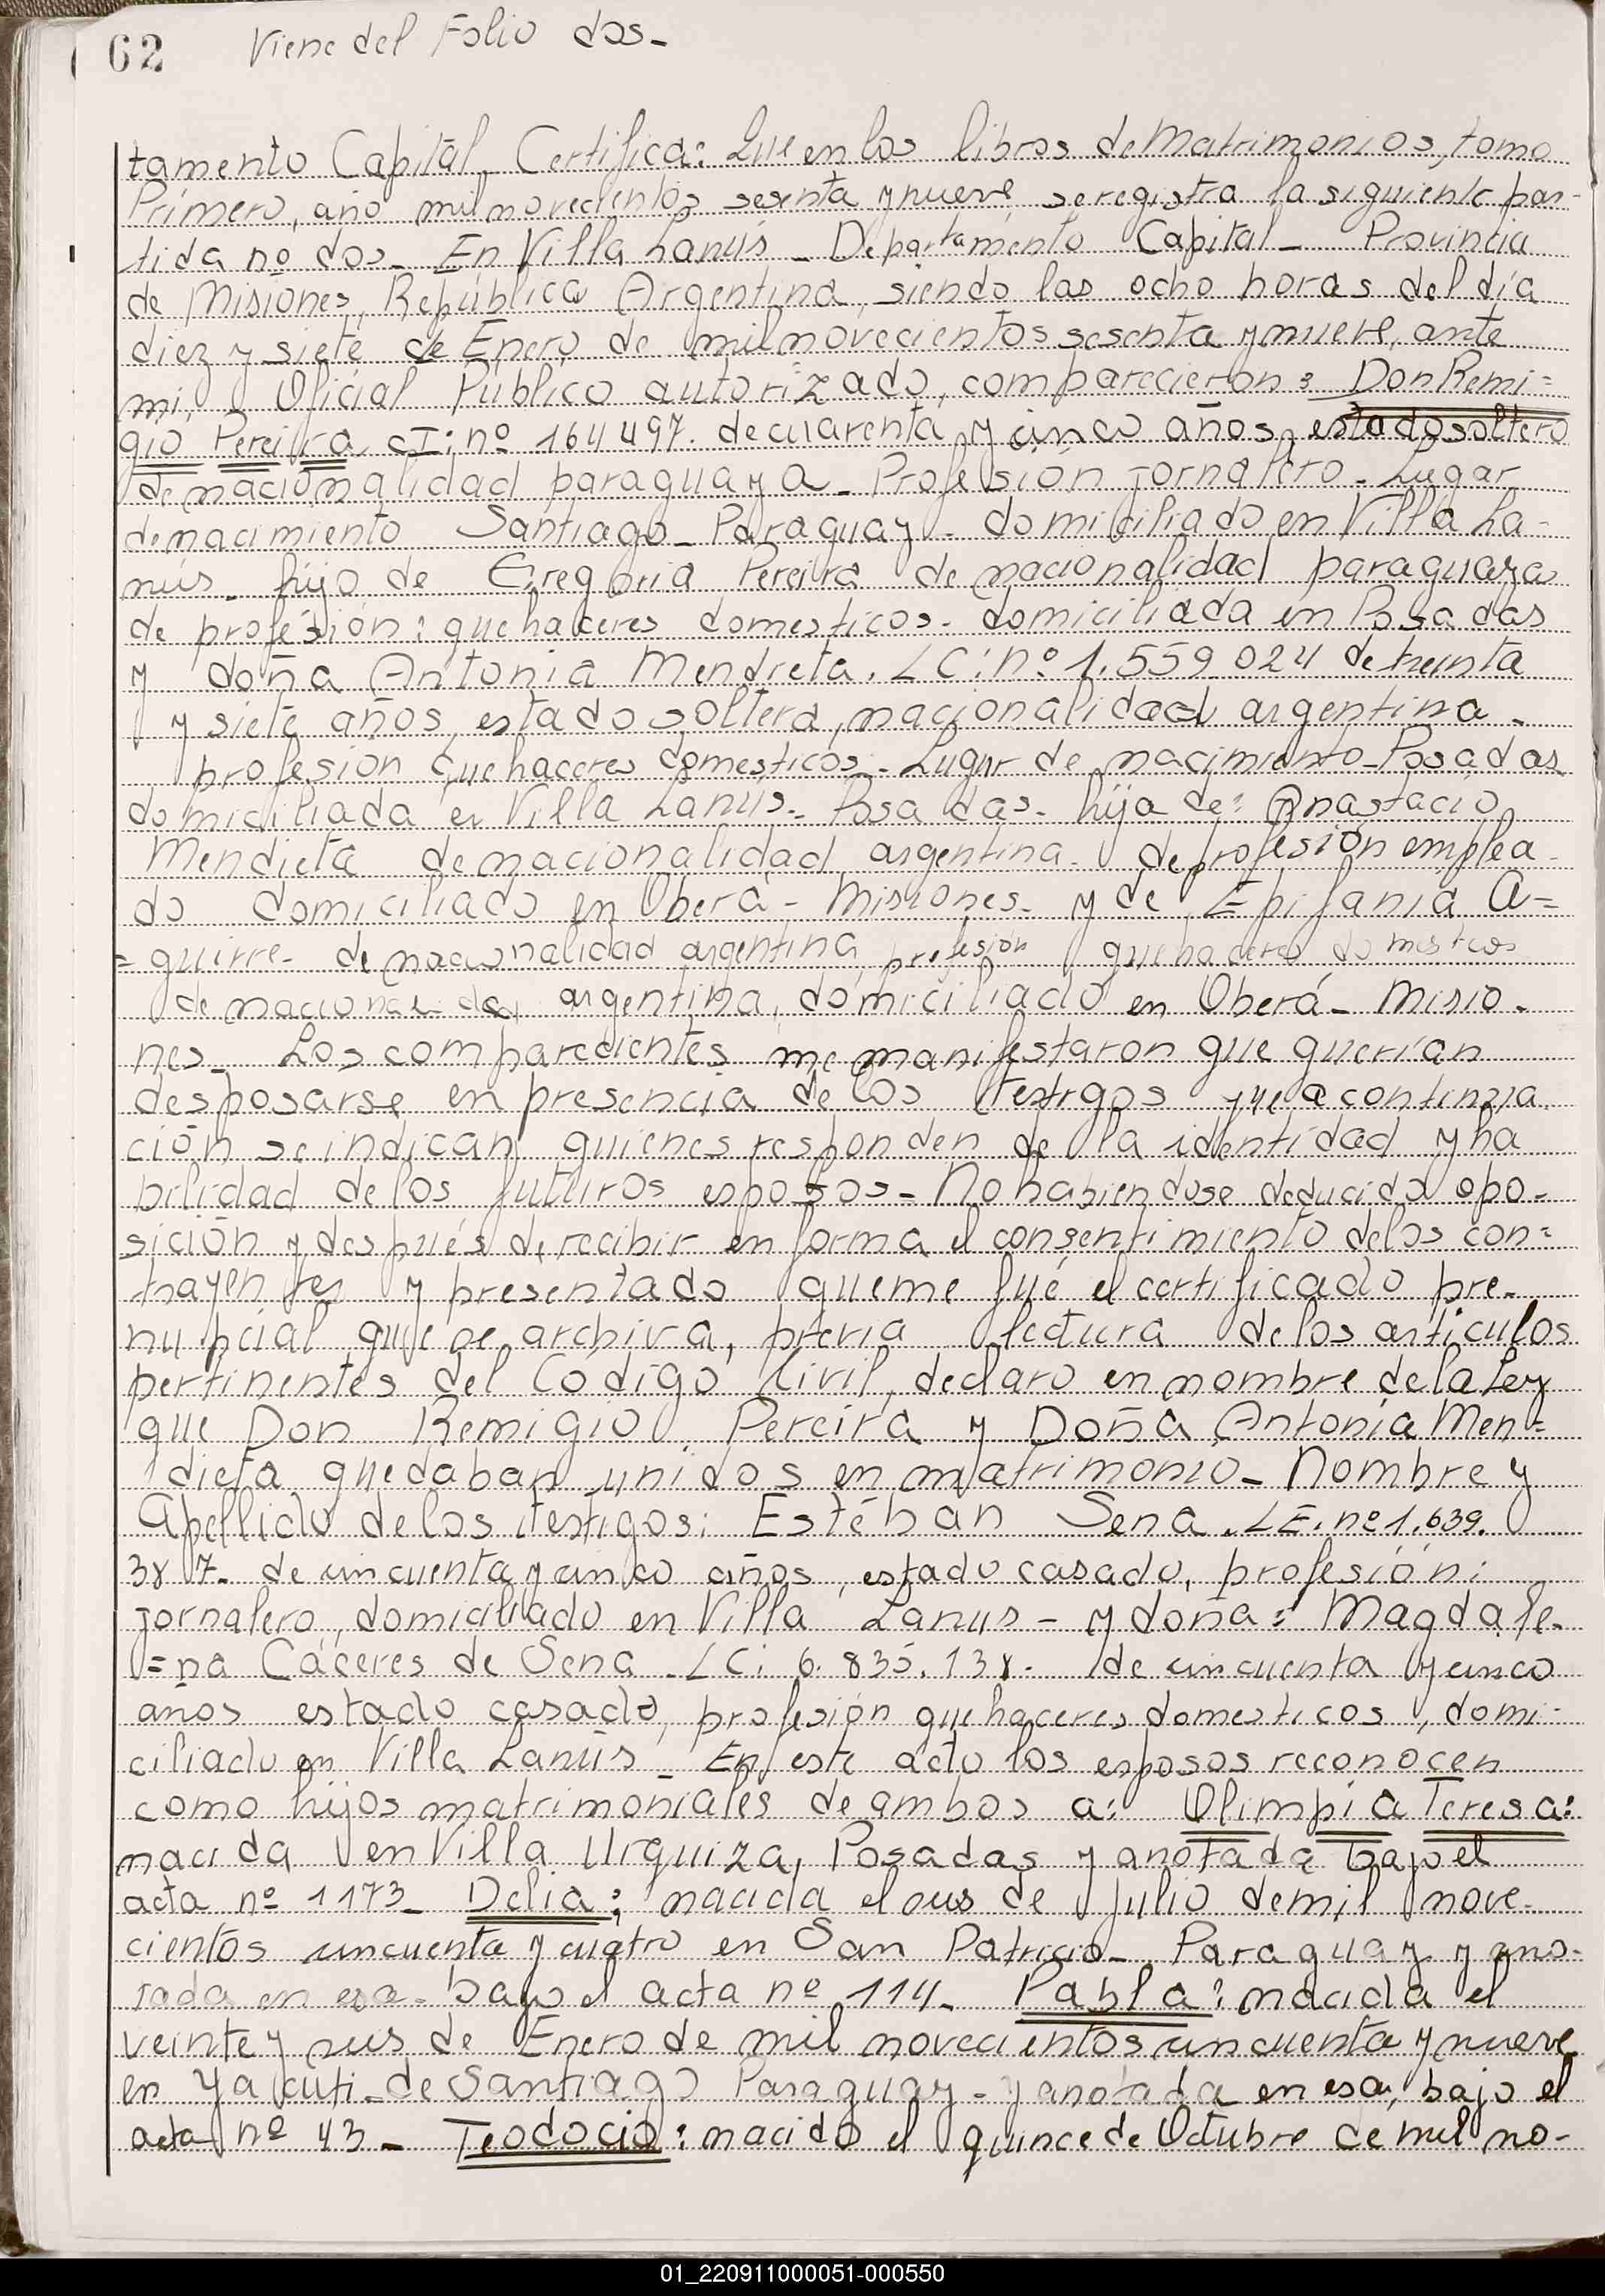 62 Viene del Folio dos-
tamento Capital. Certifica: Que en los libros de Matrimonios, tomo
Primero, año mil novecientos sesenta y nueve se registra la siguiente par-
tida nº dos- En Villa Lanús - Departamento Capital - Provincia
de Misiones, República Argentina, siendo las ocho horas del día
diez y siete de Enero de mil novecientos sesenta y nueve, ante
mi, Oficial Público autorizado, comparecieron: Don Remi=
gio Pereira, CI: nº 164497. de cuarenta y cinco años, estado soltero
de nacionalidad paraguaya - Profesión jornalero - Lugar
de nacimiento Santiago - Paraguay - domiciliado en Villa La-
nús - hijo de Gregoria Pereira de nacionalidad paraguaya
de profesión: quehaceres domesticos - domiciliada en Posadas
y doña Antonia Mendieta. LC: nº 1.559.024 de treinta
y siete años, estado soltera, nacionalidad argentina -
profesión quehaceres domesticos - Lugar de nacimiento - Posadas
domiciliada en Villa Lanús - Posadas - hija de: Anastacio
Mendieta de nacionalidad argentina - de profesión emplea-
do domiciliado en Oberá - Misiones - y de Epifania A=
=guirre - de nacionalidad argentina, profesión quehaceres domesticos
de nacionalidad argentina, domiciliado en Oberá - Misio-
nes - Los comparecientes me manifestaron que querían
desposarse en presencia de los testigos que a continua
ción se indican quienes responden de la identidad y ha
bilidad de los futuros esposos - No habiendose deducido opo-
sición y después de recibir en forma el consentimiento de los con=
trayentes y presentado que me fué el certificado pre-
nupcial que se archiva, previa lectura de los artículos
pertinentes del Código Civil, declaro en nombre de la Ley
que Don Remigio Pereira y Doña Antonia Men=
dieta quedaban unidos en matrimonio - Nombre y
Apellido de los testigos: Estéban Sena. LE. nº 1.639.
387- de cincuenta y cinco años, estado casado, profesión:
jornalero, domiciliado en Villa Lanus - y doña: Magdale-
=na Cáceres de Sena - LC: 6.835.138 - de cincuenta y cinco
años estado casado, profesión quehaceres domesticos, domi-
ciliado en Villa Lanús - En este acto los esposos reconocen
como hijos matrimoniales de ambos a: Olimpia Teresa:
nacida en Villa Urquiza, Posadas y anotada bajo el
acta nº 1173- Delia: nacida el seis de Julio de mil nove-
cientos cincuenta y cuatro en San Patricio - Paraguay y ano-
tada en esa - bajo el acta nº 114- Pabla: nacida el
veinte y seis de Enero de mil novecientos cincuenta y nueve
en Yacuti - de Santiago Paraguay - y anotada en esa, bajo el
acta nº 43 - Teodocio: nacido el quince de Octubre de mil no-
01_220911000051-000550